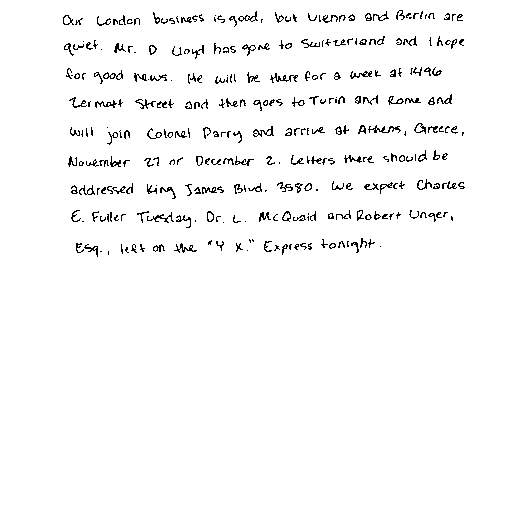 Our London business is good, but Vienna and Berlin are
quiet. Mr. D Lloyd has gone to Switzerland and I hope
for good news. He will be there for a week at 1496
Zermott Street and then goes to Turin and Rome and
will join Colonel Parry and arrive at Athens, Greece,
November 27 or December 2. Letters there should be
addressed King James Blvd. 3580. We expect Charles
E. Fuller Tuesday. Dr. L. McQuaid and Robert Unger,
Esq., left on the "Y X." Express tonight.